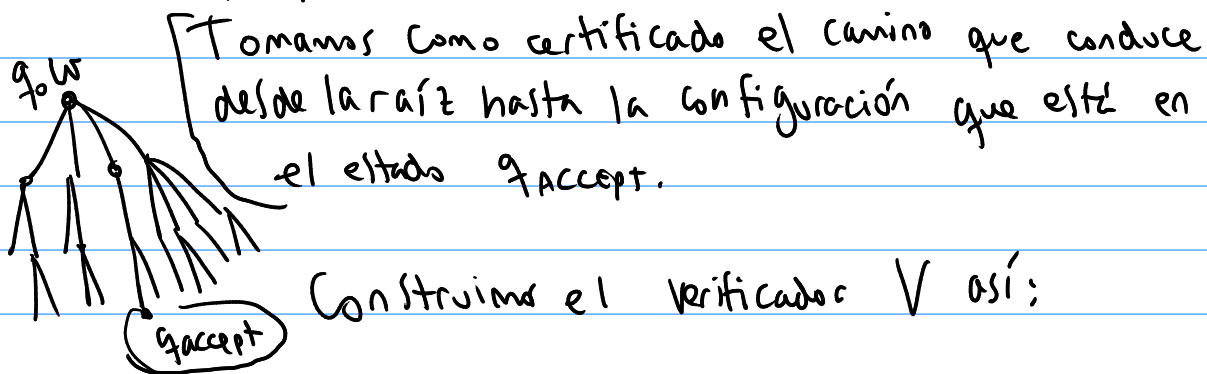 Tomamos como certificado el camino que conduce
q₀w
desde la raíz hasta la configuración que está en
el estado q_ACCEPT.
Construimos el verificador V así:
q_accept